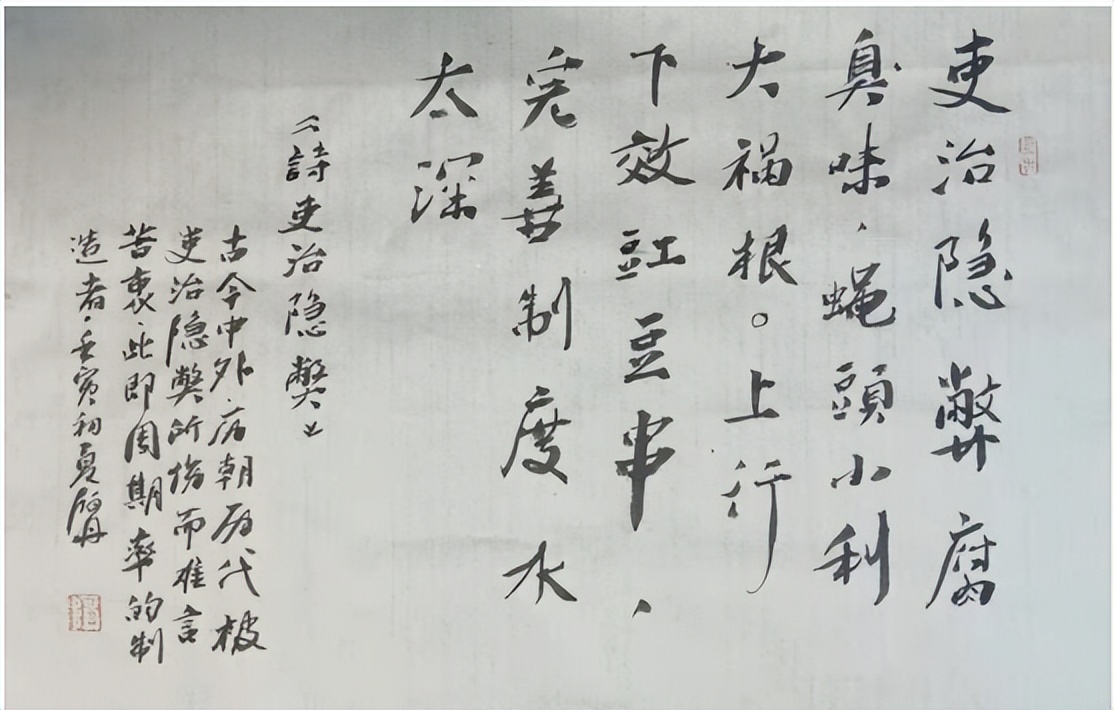 吏治隐弊腐
臭味，蝇頭小利
大祸根。上行
下效豇豆串，
完善制度水
太深
《詩吏治隐弊》
古今中外，历朝历代被
吏治隐弊所惱而难言
苦衷，此即周期率的制
造者，壬寅初夏